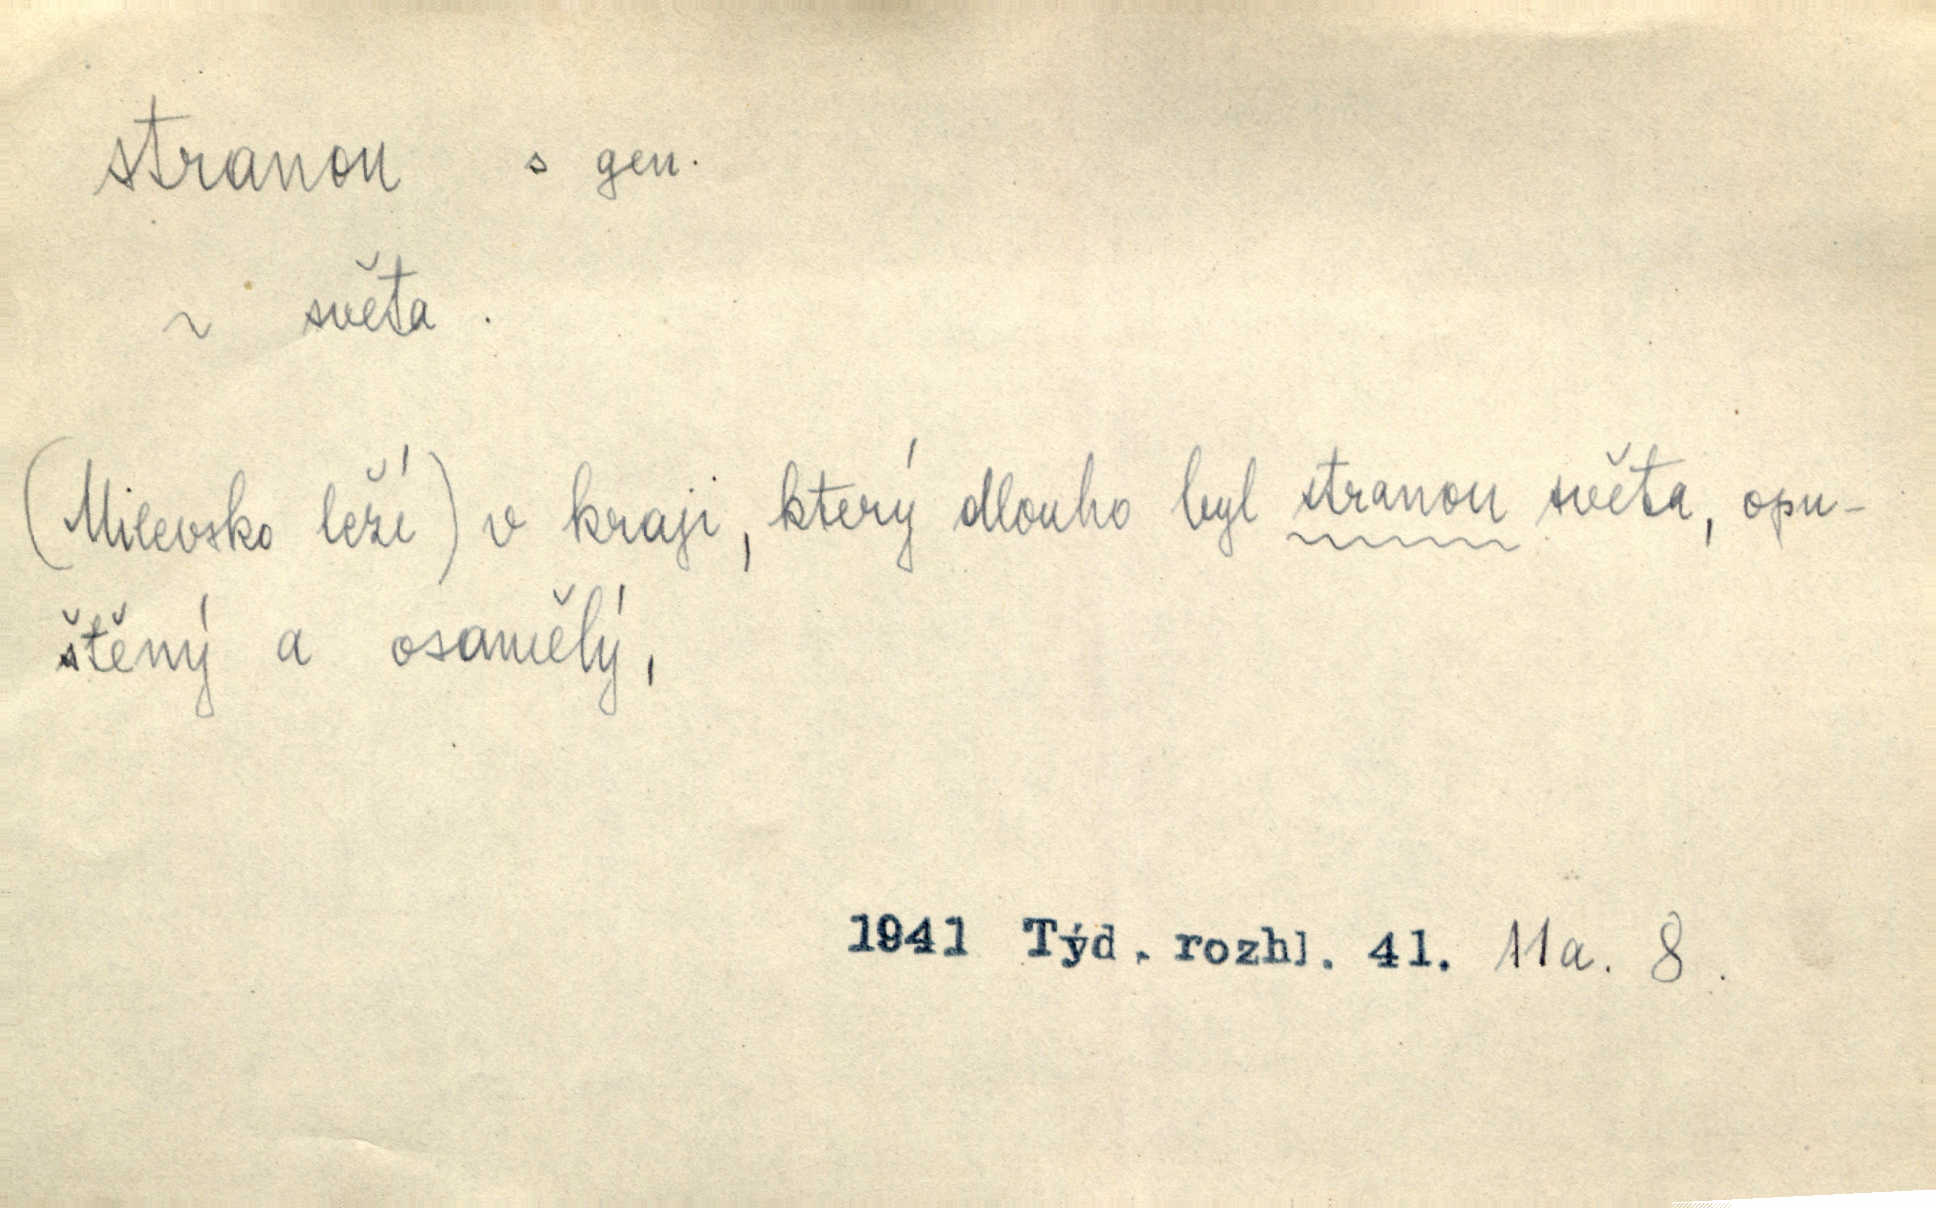 stranou s gen.
~ světa.
(Milevsko leží) v kraji, který dlouho byl stranou světa, opu-
štěný a osamělý,
1941 Týd. rozhl. 41. 11a. 8.